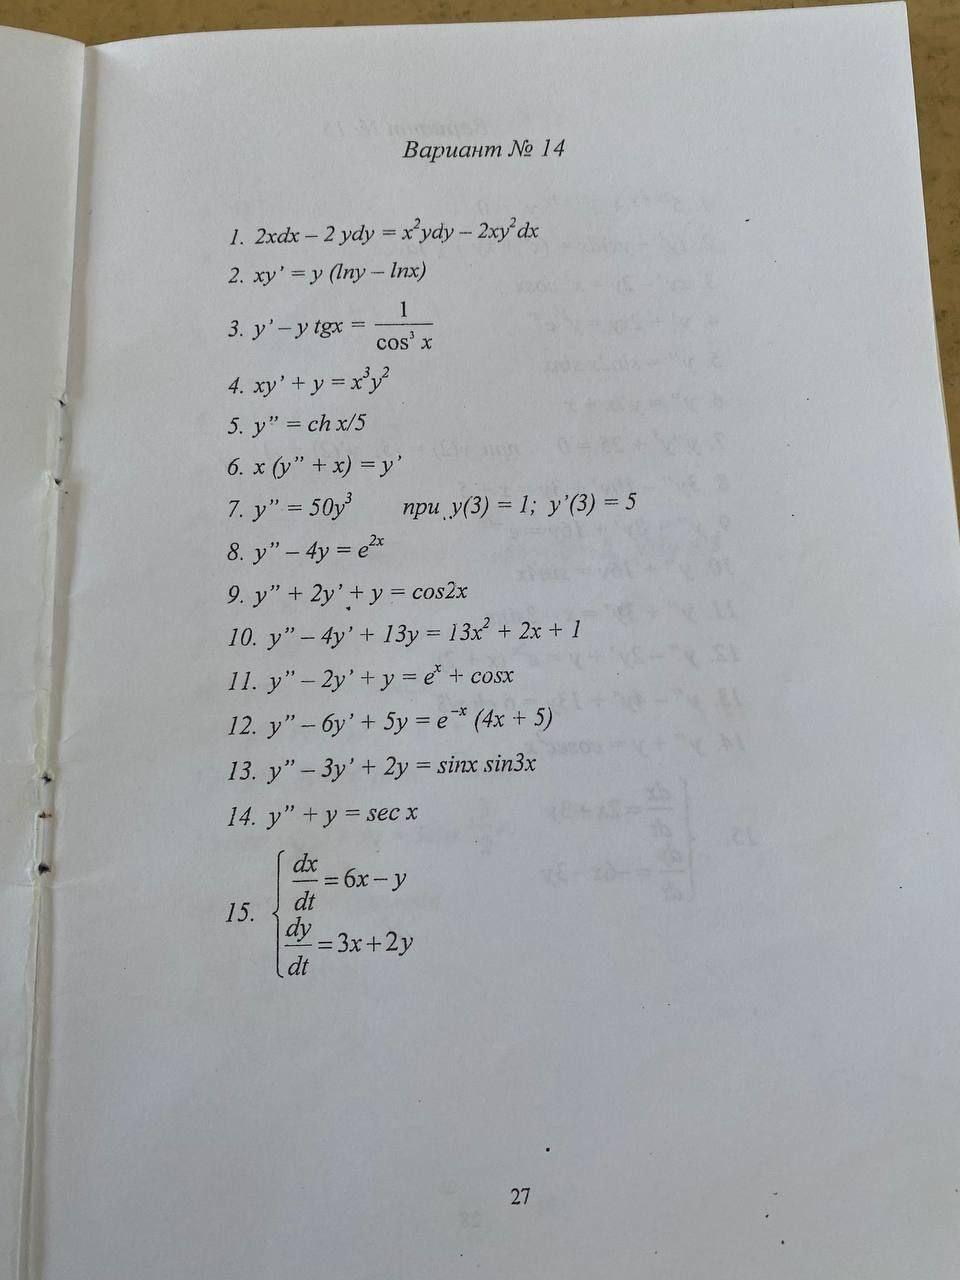 Вариант № 14
1. 2xdx – 2 ydy = x²ydy – 2xy²dx
2. xy’ = y (lny – lnx)
3. y’ – y tgx = 1/cos³ x
4. xy’ + y = x³y²
5. y” = ch x/5
6. x (y” + x) = y’
7. y” = 50y³ при y(3) = 1; y’(3) = 5
8. y” – 4y = e²ˣ
9. y” + 2y’ + y = cos2x
10. y” – 4y’ + 13y = 13x² + 2x + 1
11. y” – 2y’ + y = eˣ + cosx
12. y” – 6y’ + 5y = e⁻ˣ (4x + 5)
13. y” – 3y’ + 2y = sinx sin3x
14. y” + y = sec x
15. { dx/dt = 6x – y
dy/dt = 3x + 2y
27